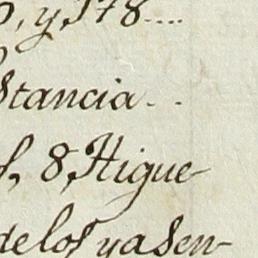 o, y 178....
stancia..
s, 8, Higue-
de los ya sen-